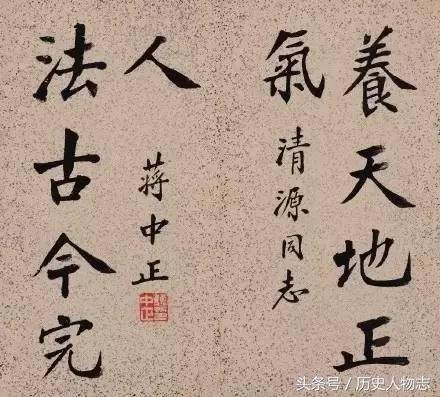 養天地正
氣
清源同志
法古今完
人
蔣中正
中正
头条号 / 历史人物志